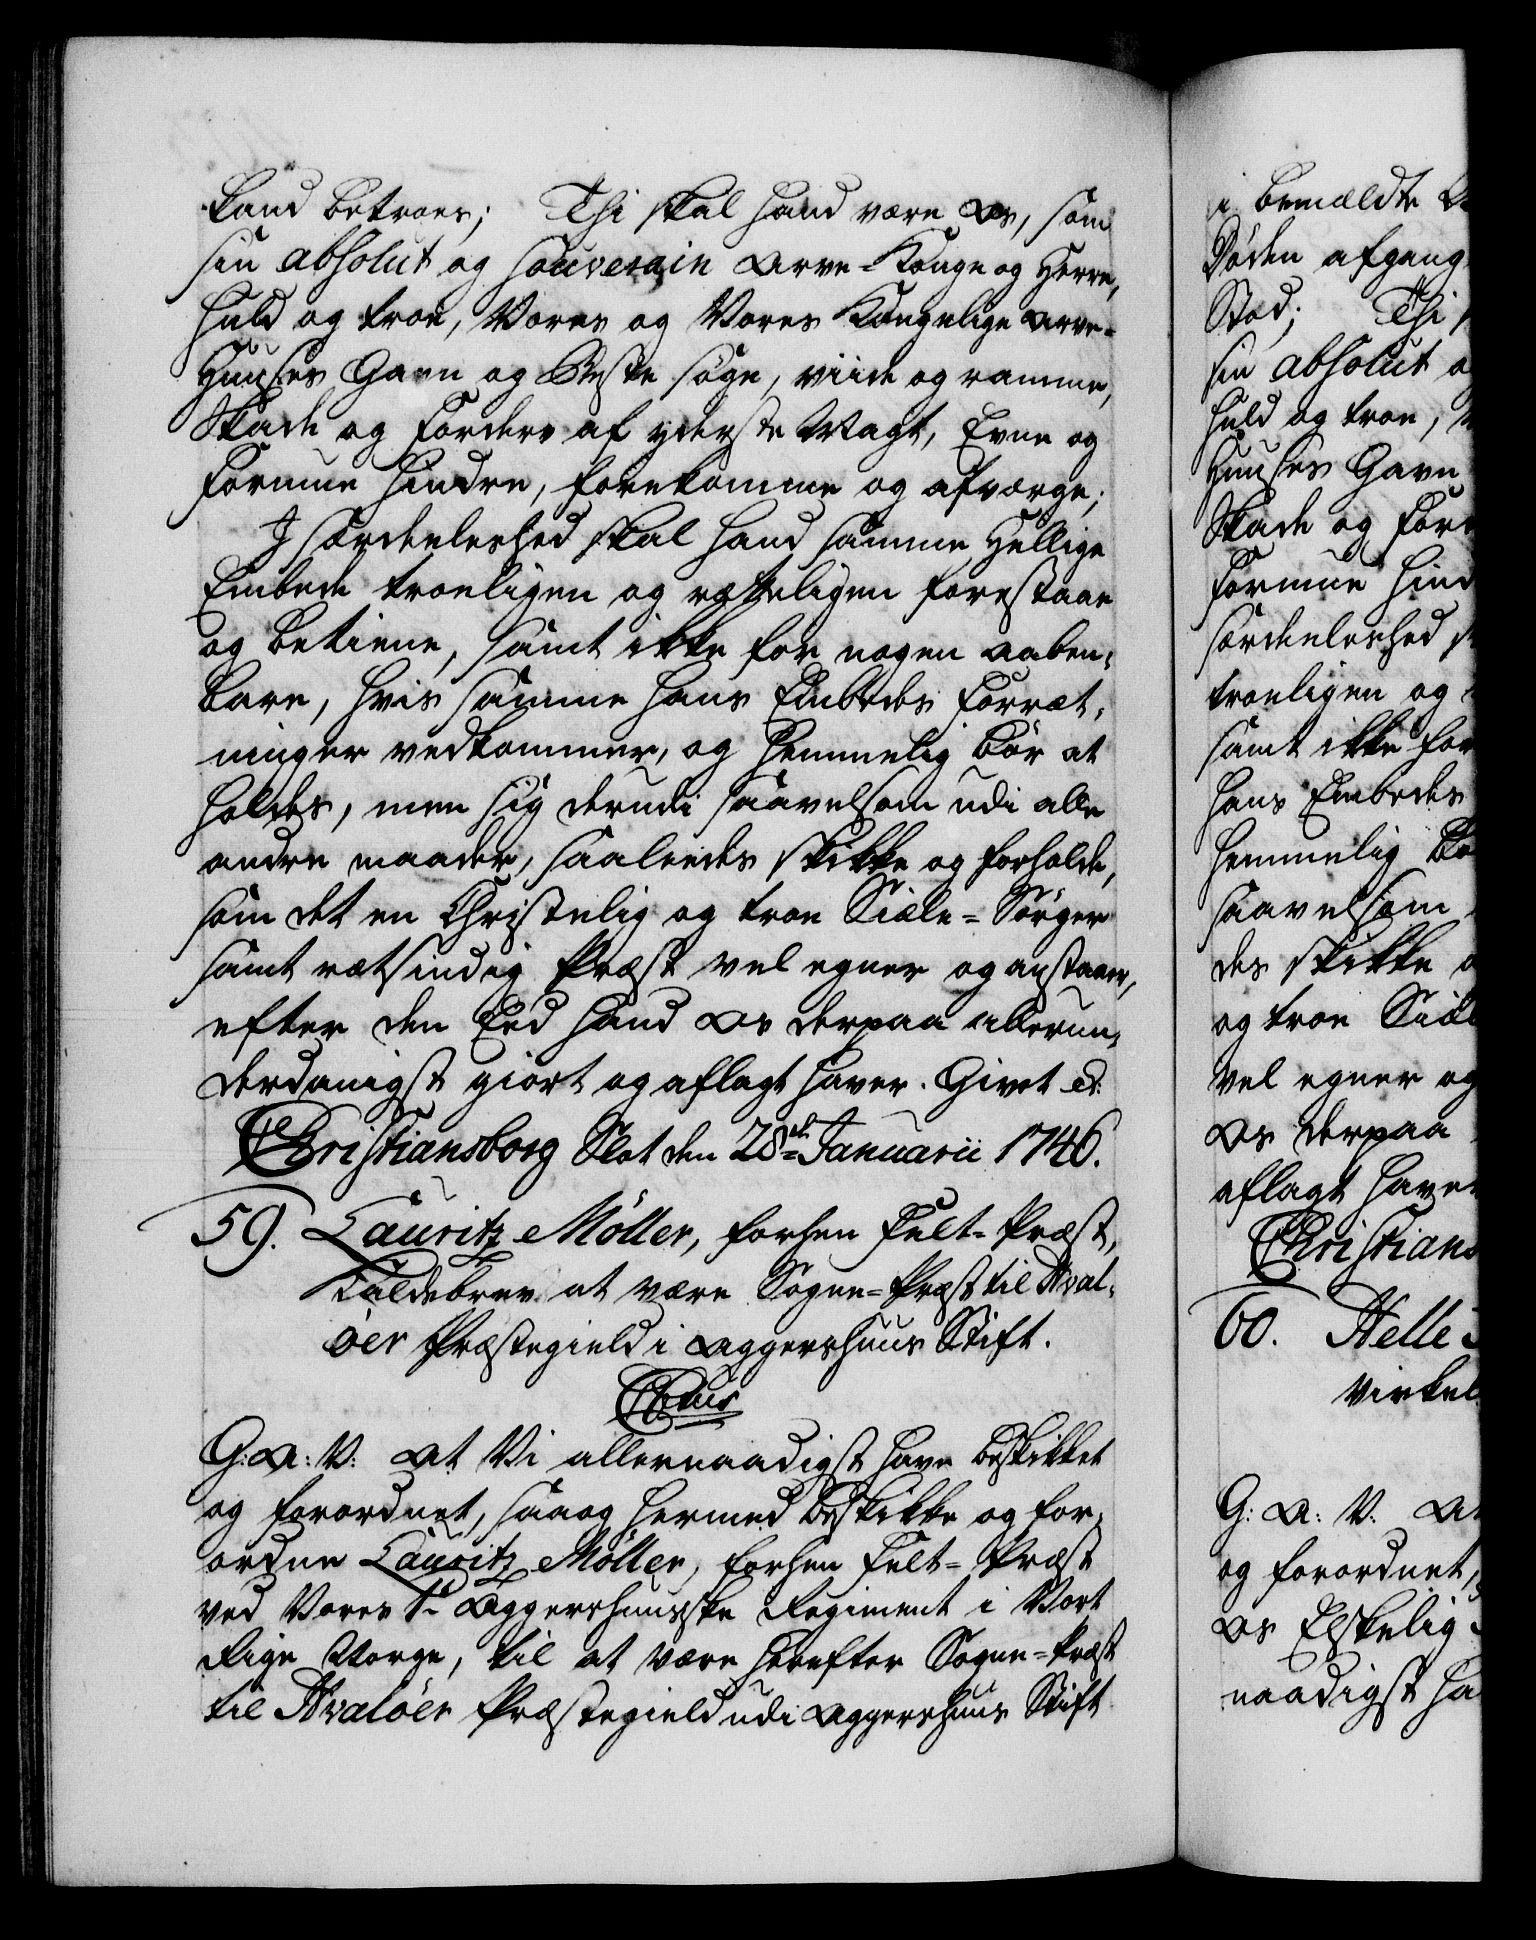 kand betroes; Thi skal hand være Os, som
sin absolut og souverain Arve-Konge og Herre,
huld og troe, Vores og Vores Kongelige Arve-
Huuses Gavn og Beste søge, viide og ramme,
Skade og Forderv af yderste Magt, Evne og
Formue hindre, forekomme og afværge;
I særdeeleshed skal hand samme Hellige
Embede troeligen og rætteligen forestaae
og betiene, samt ikke for nogen aaben-
bare, hvis samme hans Embedes Forræt-
ninger vedkommer, og hemmelig bør at
holdes, men sig derudi saavelsom udi alle
andre maader, saaledes skikke og forholde,
som det en Christelig og troe Siæle-Sørger
samt rætsindig Præst vel egner og anstaaer,
efter den Eed hand Os derpaa allerun-
derdanigst giort og aflagt haver. Givet &:
Christiansborg Slot den 28de Januarii 1746.
59. Lauritz Møller, forhen Felt-Præst,
Kaldebrev at være Sogne-Præst til Hval-
öer Præstegield i Aggershuus Stift.
C6tus
G: A: V: At Vi allernaadigst have beskikket
og forordnet, saa og hermed beskikke og for-
ordne Lauritz Møller, forhen Felt-Præst
ved Vores 1te Aggershuusiske Regiment i Vort
Rige Norge, til at være herefter Sogne-Præst
til Hvalöer Præstegield udi Aggershuus Stift
i bemældte
Døden afgang
Stad; Thi
sin absolut
huld og troe,
Huuses Gavn
Skade og For
Formue hind
særdeeleshed
troeligen og
samt ikke for
hans Embedes
hemmelig bø
saavelsom
des skikke
og troe Siæl
vel egner og
Os derpaa
aflagt haver
Christians
60. Helle
virkel
G: A: V: At
og forordnet,
Os Elskelig
naadigst ha